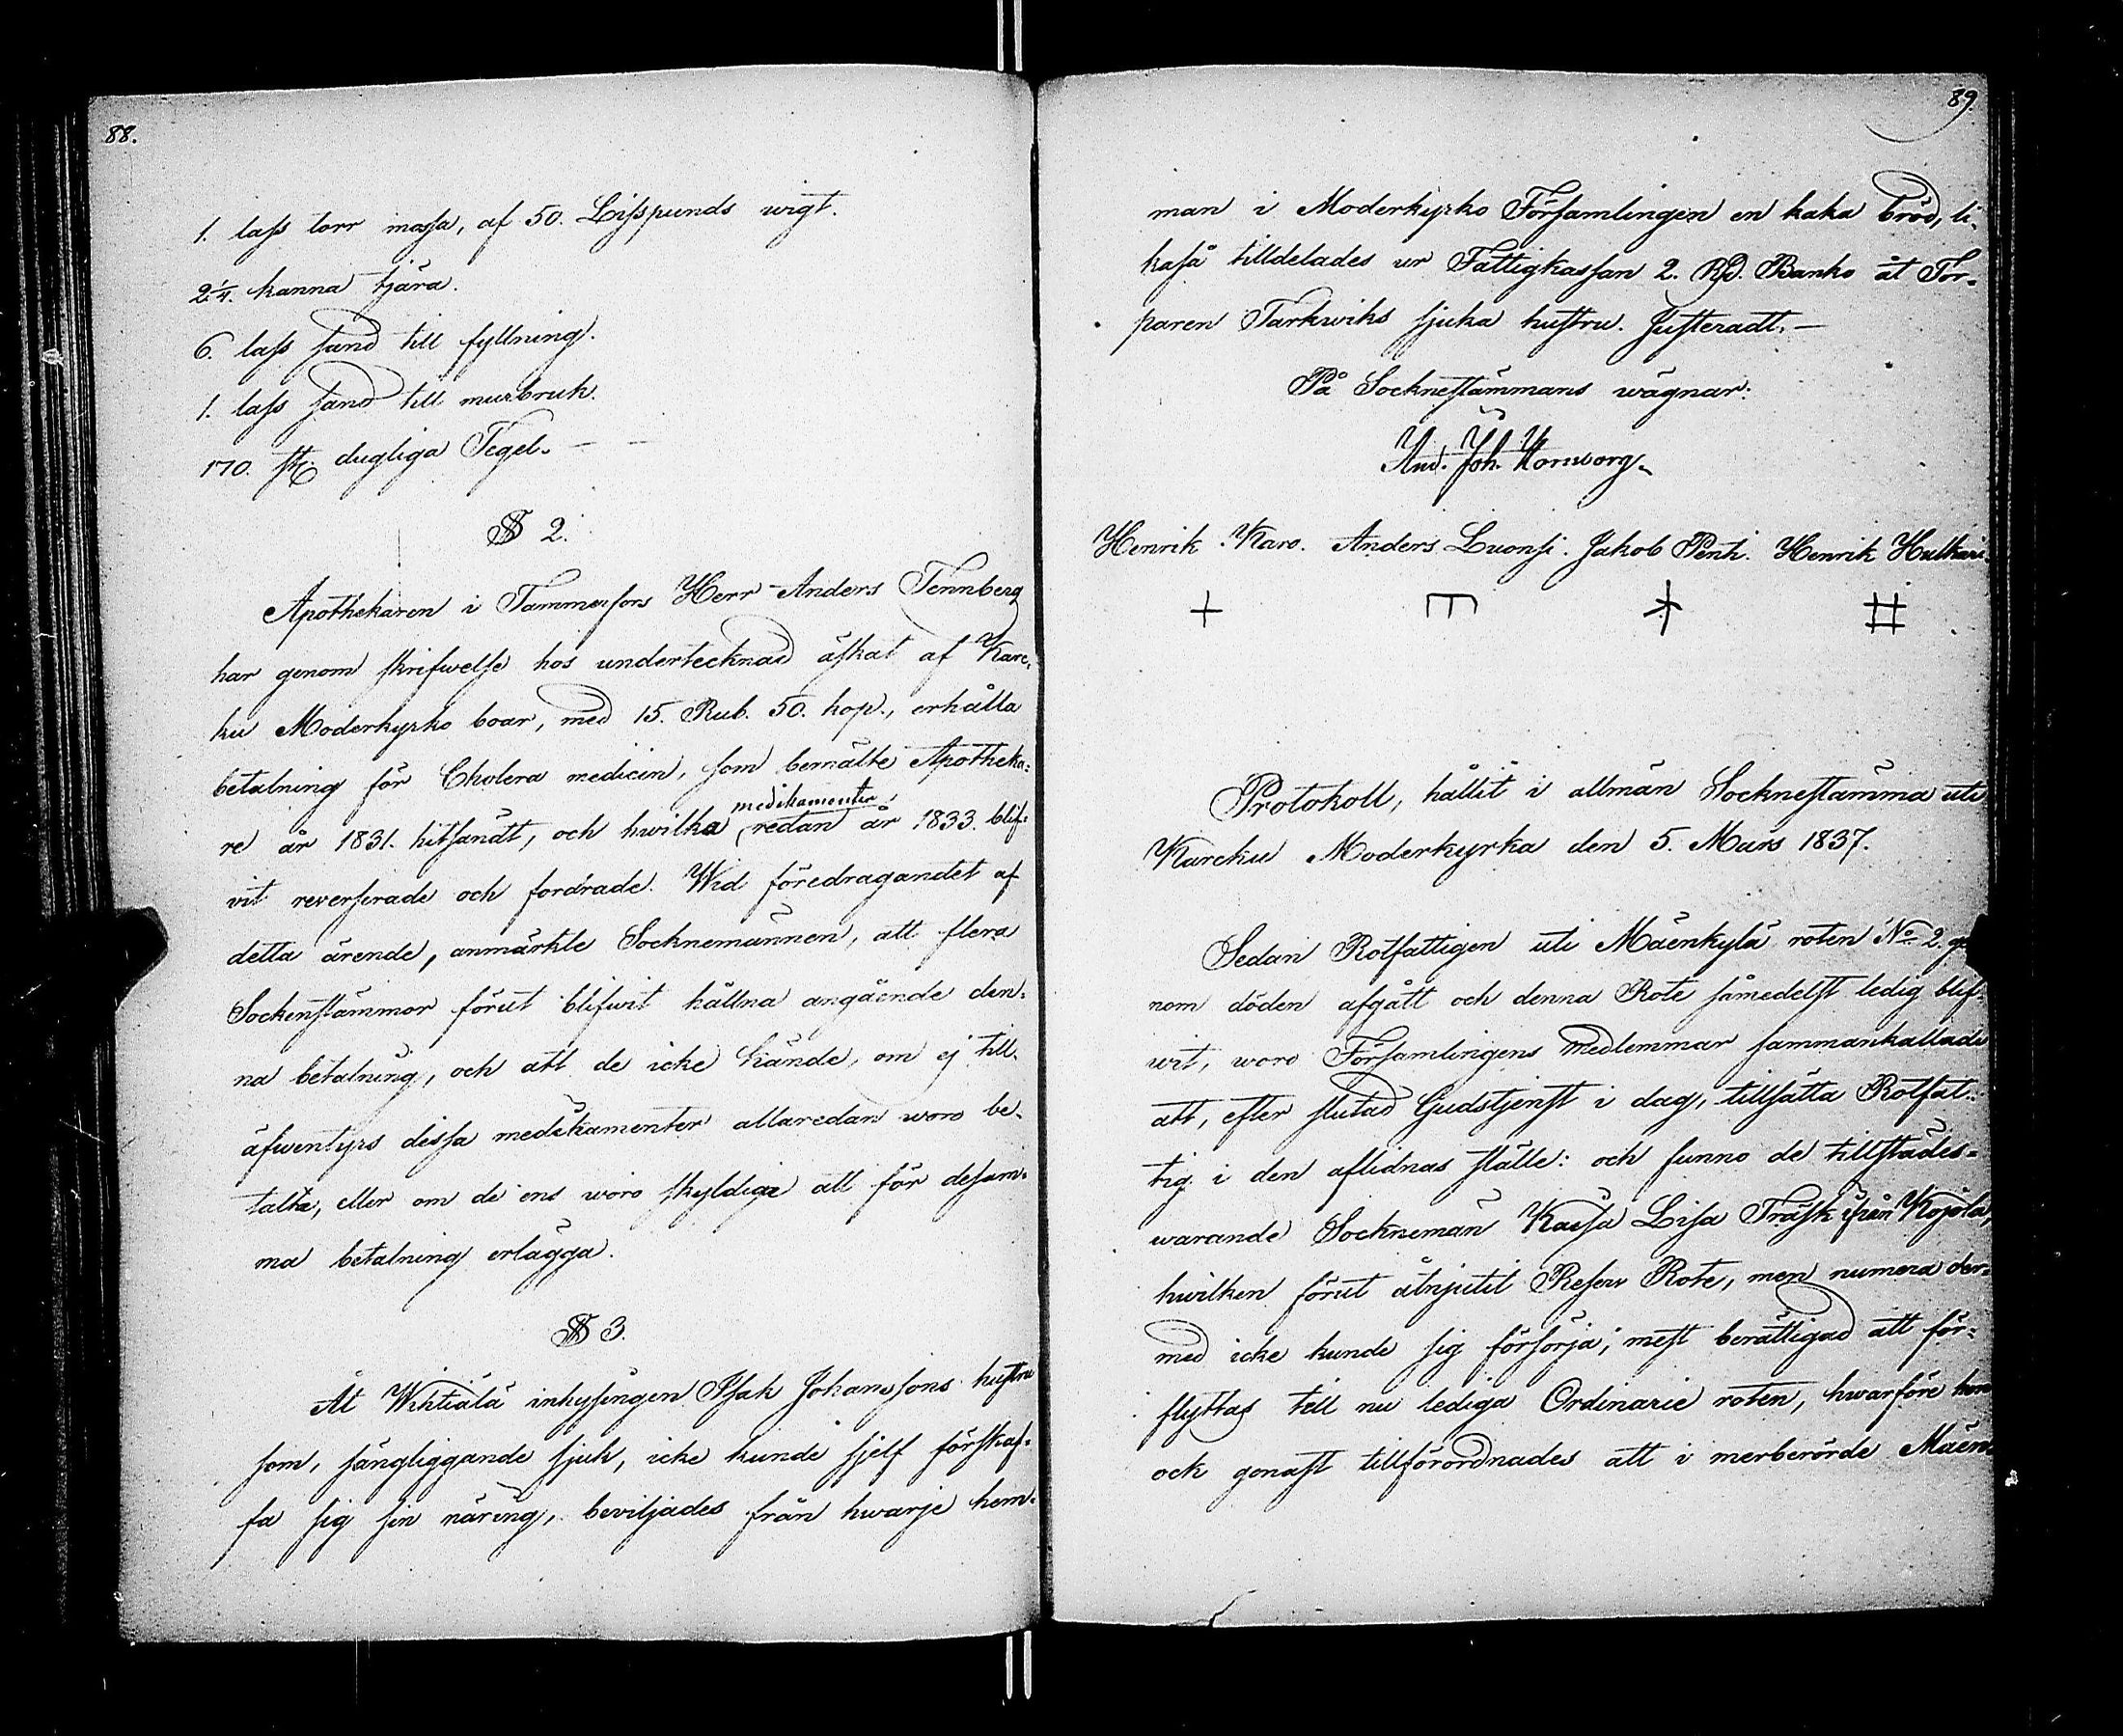 88.
1. lass torr mossa, af 50. Lisspunds wigt.
2 1/4. kanna tjära.
6. lass sand till fyllning.
1. lass sand till murbruk.
170. st. dugliga Tegel. — —
§ 2.
Apothekaren i Tammerfors Herr Anders Tennberg
har genom skrifwelse hos undertecknad äskat af Karc-
ku Moderkyrko boar, med 15. Rub. 50. kop., erhålla
betalning för Cholera medicin, som bemälte Apotheka-
re år 1831. hitsändt, och hwilka medikamenter redan år 1833. blif-
vit reverserade och fordrade. Wid föredragandet af
detta ärende, anmärkte Socknemännen, att flera
Sockenstämmor förut blifwit hållna angående den-
na betalning, och att de icke kände, om ej till-
äfwentyrs dessa medikamenter allaredan woro be-
talta, eller om de ens woro skyldiga att för desam-
ma betalning erlägga.
§ 3.
Åt Wihtiälä inhysingen Isak Johanssons hustru
som, sängliggande sjuk, icke kunde sjelf förskaf-
fa sig sin näring, beviljades från hwarje hem-
89.
man i Moderkyrko Församlingen en kaka bröd, li-
kaså tilldelades ur Fattigkassan 2. Rd. Banko åt Tor-
paren Tarkwiks sjuka hustru. Justeradt. —
På Socknestämmans wägnar:
And. Joh. Kornborg.
Henrik Karo. Anders Luonsi. Jakob Penti. Henrik Hulkari.
Protokoll, hållit i allmän Socknestämma uti
Karcku Moderkyrka den 5. Mars 1837.
Sedan Rotfattigen uti Mäenkylä roten No 2. ge-
nom döden afgått och denna Rote såmedelst ledig blif-
wit, woro Församlingens medlemmar sammankallade
att, efter slutad Gudstjenst i dag, tillsätta Rotfat-
tig i den aflidnas ställe: och funno de tillstädes-
warande Sockneman Kaisa Lisa Träsk ifrån Kojola,
hwilken förut åtnjutit Reserv Rote, men numera der-
med icke kunde sig försörja, mest berättigad att för-
flyttas till nu lediga Ordinarie roten, hwarföre hon
ock genast tillförordnades att i merberörde Mäen-